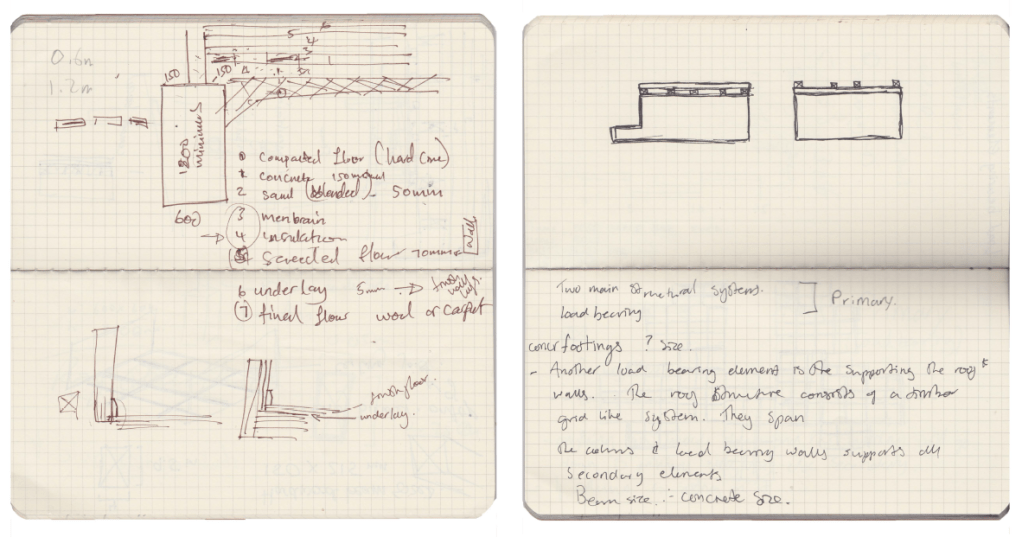 0.6m
1.2m
150
150
6
5
4
3
1200
minimum
600
0 compacted floor (hard core)
1 concrete 150mm
2 sand (blended) - 50mm
3 menbrain
4 insulation
5 screeded floor 70mm
wall
6 underlay 5mm → finish
7 fined floor wod or carpet
finish floor.
underlay.
Two main structural systems.
load bearing
Primary.
concr footings ? size.
- Another load bearing element is the supporting the roof &
walls. The roof structure consists of a timber
grid like system. They span
the colums & load bearing walls supports all
Secondary elements
Beam size :- concrete size.